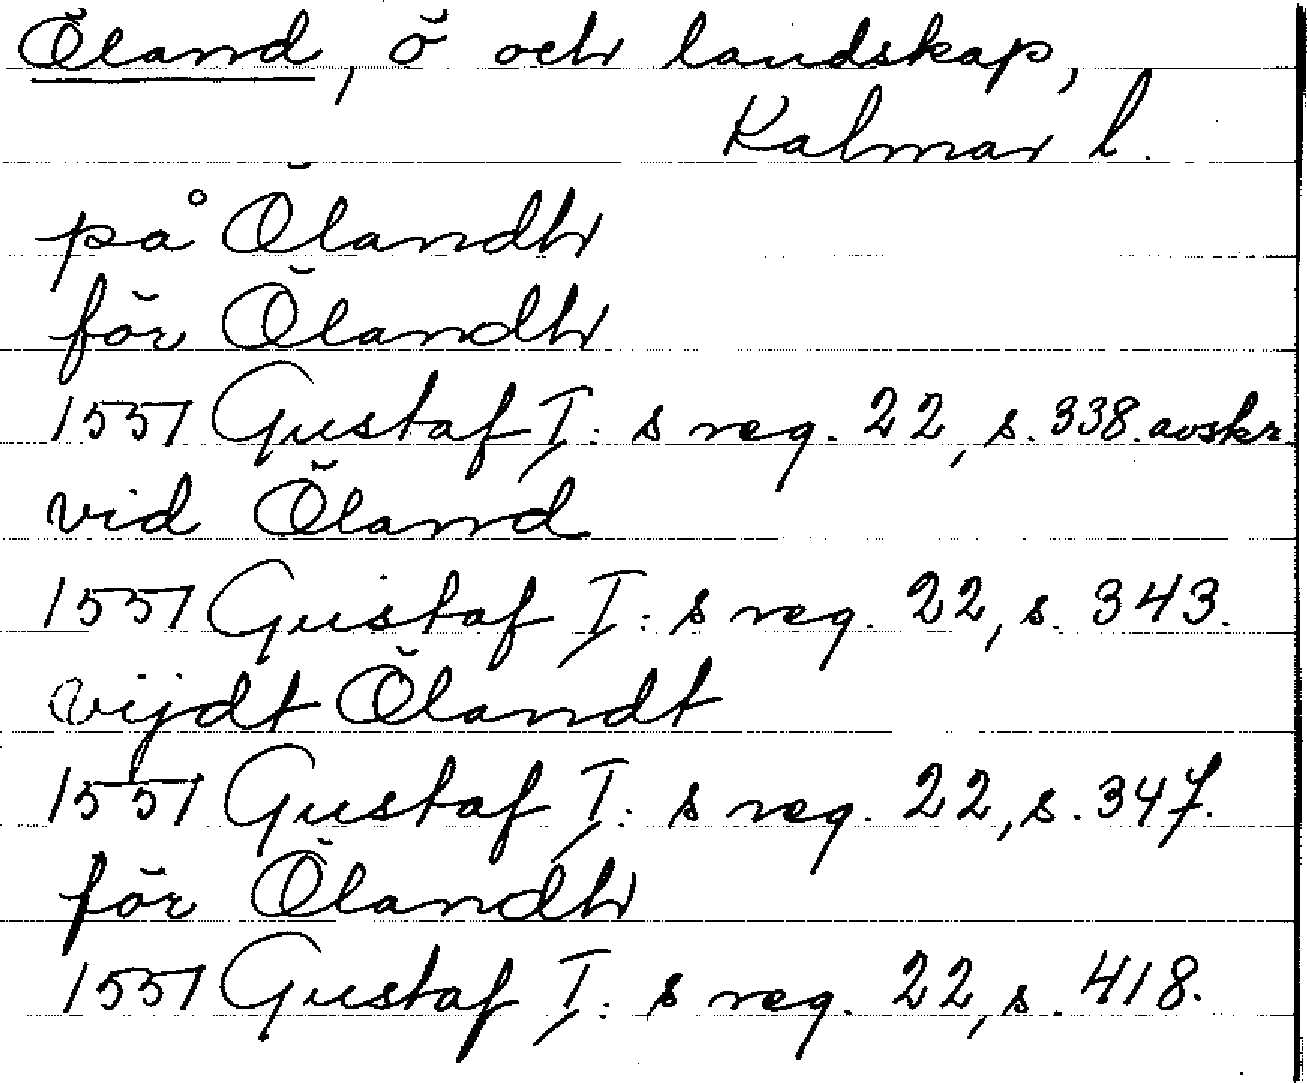 Öland, ö och landskap,
Kalmar l.
på Ölandh
för Ölandh
1551 Gustaf I: s reg. 22, s. 338. avskr.
vid Öland
1551 Gustaf I: s reg. 22, s. 343.
vijdt Ölandt
1551 Gustaf I: s reg. 22, s. 347.
för Ölandh
1551 Gustaf I: s reg. 22, s. 418.